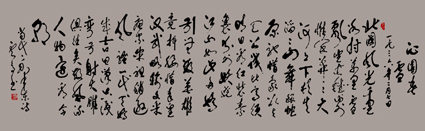 沁园春
雪
北国风光千里
冰封万里雪
飘望长城内外
惟余莽莽大
河上下顿失
滔滔山舞银蛇
原驰蜡象欲
与天公试比高
江山如此多娇
引无数英雄
竞折腰惜秦皇
汉武略输文采
唐宗宋祖稍逊
风骚一代天骄
成吉思汗只识
弯弓射大雕
俱往矣数风流
人物还看今
朝